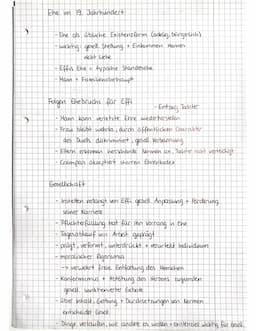 Ehe im 19. Jahrhundert
- Ehe als übliche Existenzform (adelig, bürgerlich)
- wichtig: gesell. Stellung + Einkommen Mannes
nicht Liebe
- Effis Ehe = typische Standesehe
- Mann = Familienoberhaupt
Folgen Ehebruchs für Effi
- Entzug Tochter
- Mann kann verletzte Ehre wiederherstellen
- Frau bleibt wehrlos, durch öffentlichen Charakter
des Duells diskriminiert, gesell. Verbannung
- Eltern erkennen herrschende Normen an, Tochter nicht verteidigt
- Crampas akzeptiert starren Ehrenkodex
Gesellschaft
- Instetten verlangt von Effi gesell. Anpassung + Förderung
seiner Karriere
- Pflichterfüllung hat für ihn Vorrang in Ehe
- Tagesablauf von Arbeit geprägt
- prägt, verformt, unterdrückt + verurteilt Individuen
- moralischer Rigorismus
→ verwehrt freie Entfaltung des Menschen
- Konformismus + Haltung des Instetten zugunsten
gesell. funktionierter Einheit
- Über Inhalt, Geltung + Durchsetzungen von Normen
entscheidet Gesell.
- Dinge verlaufen, wie andere es wollen + Einzelner wichtig für Gesell.